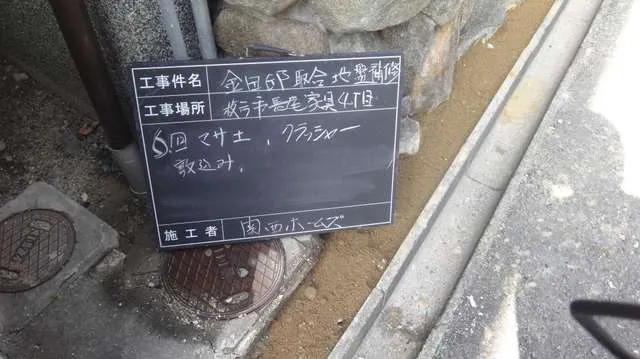 工事件名 金田邸取合地盤補修
工事場所 枚方市長尾家具4丁目
⑥回 マサ土、クラッシャー
敷込み。
施工者 関西ホームズ